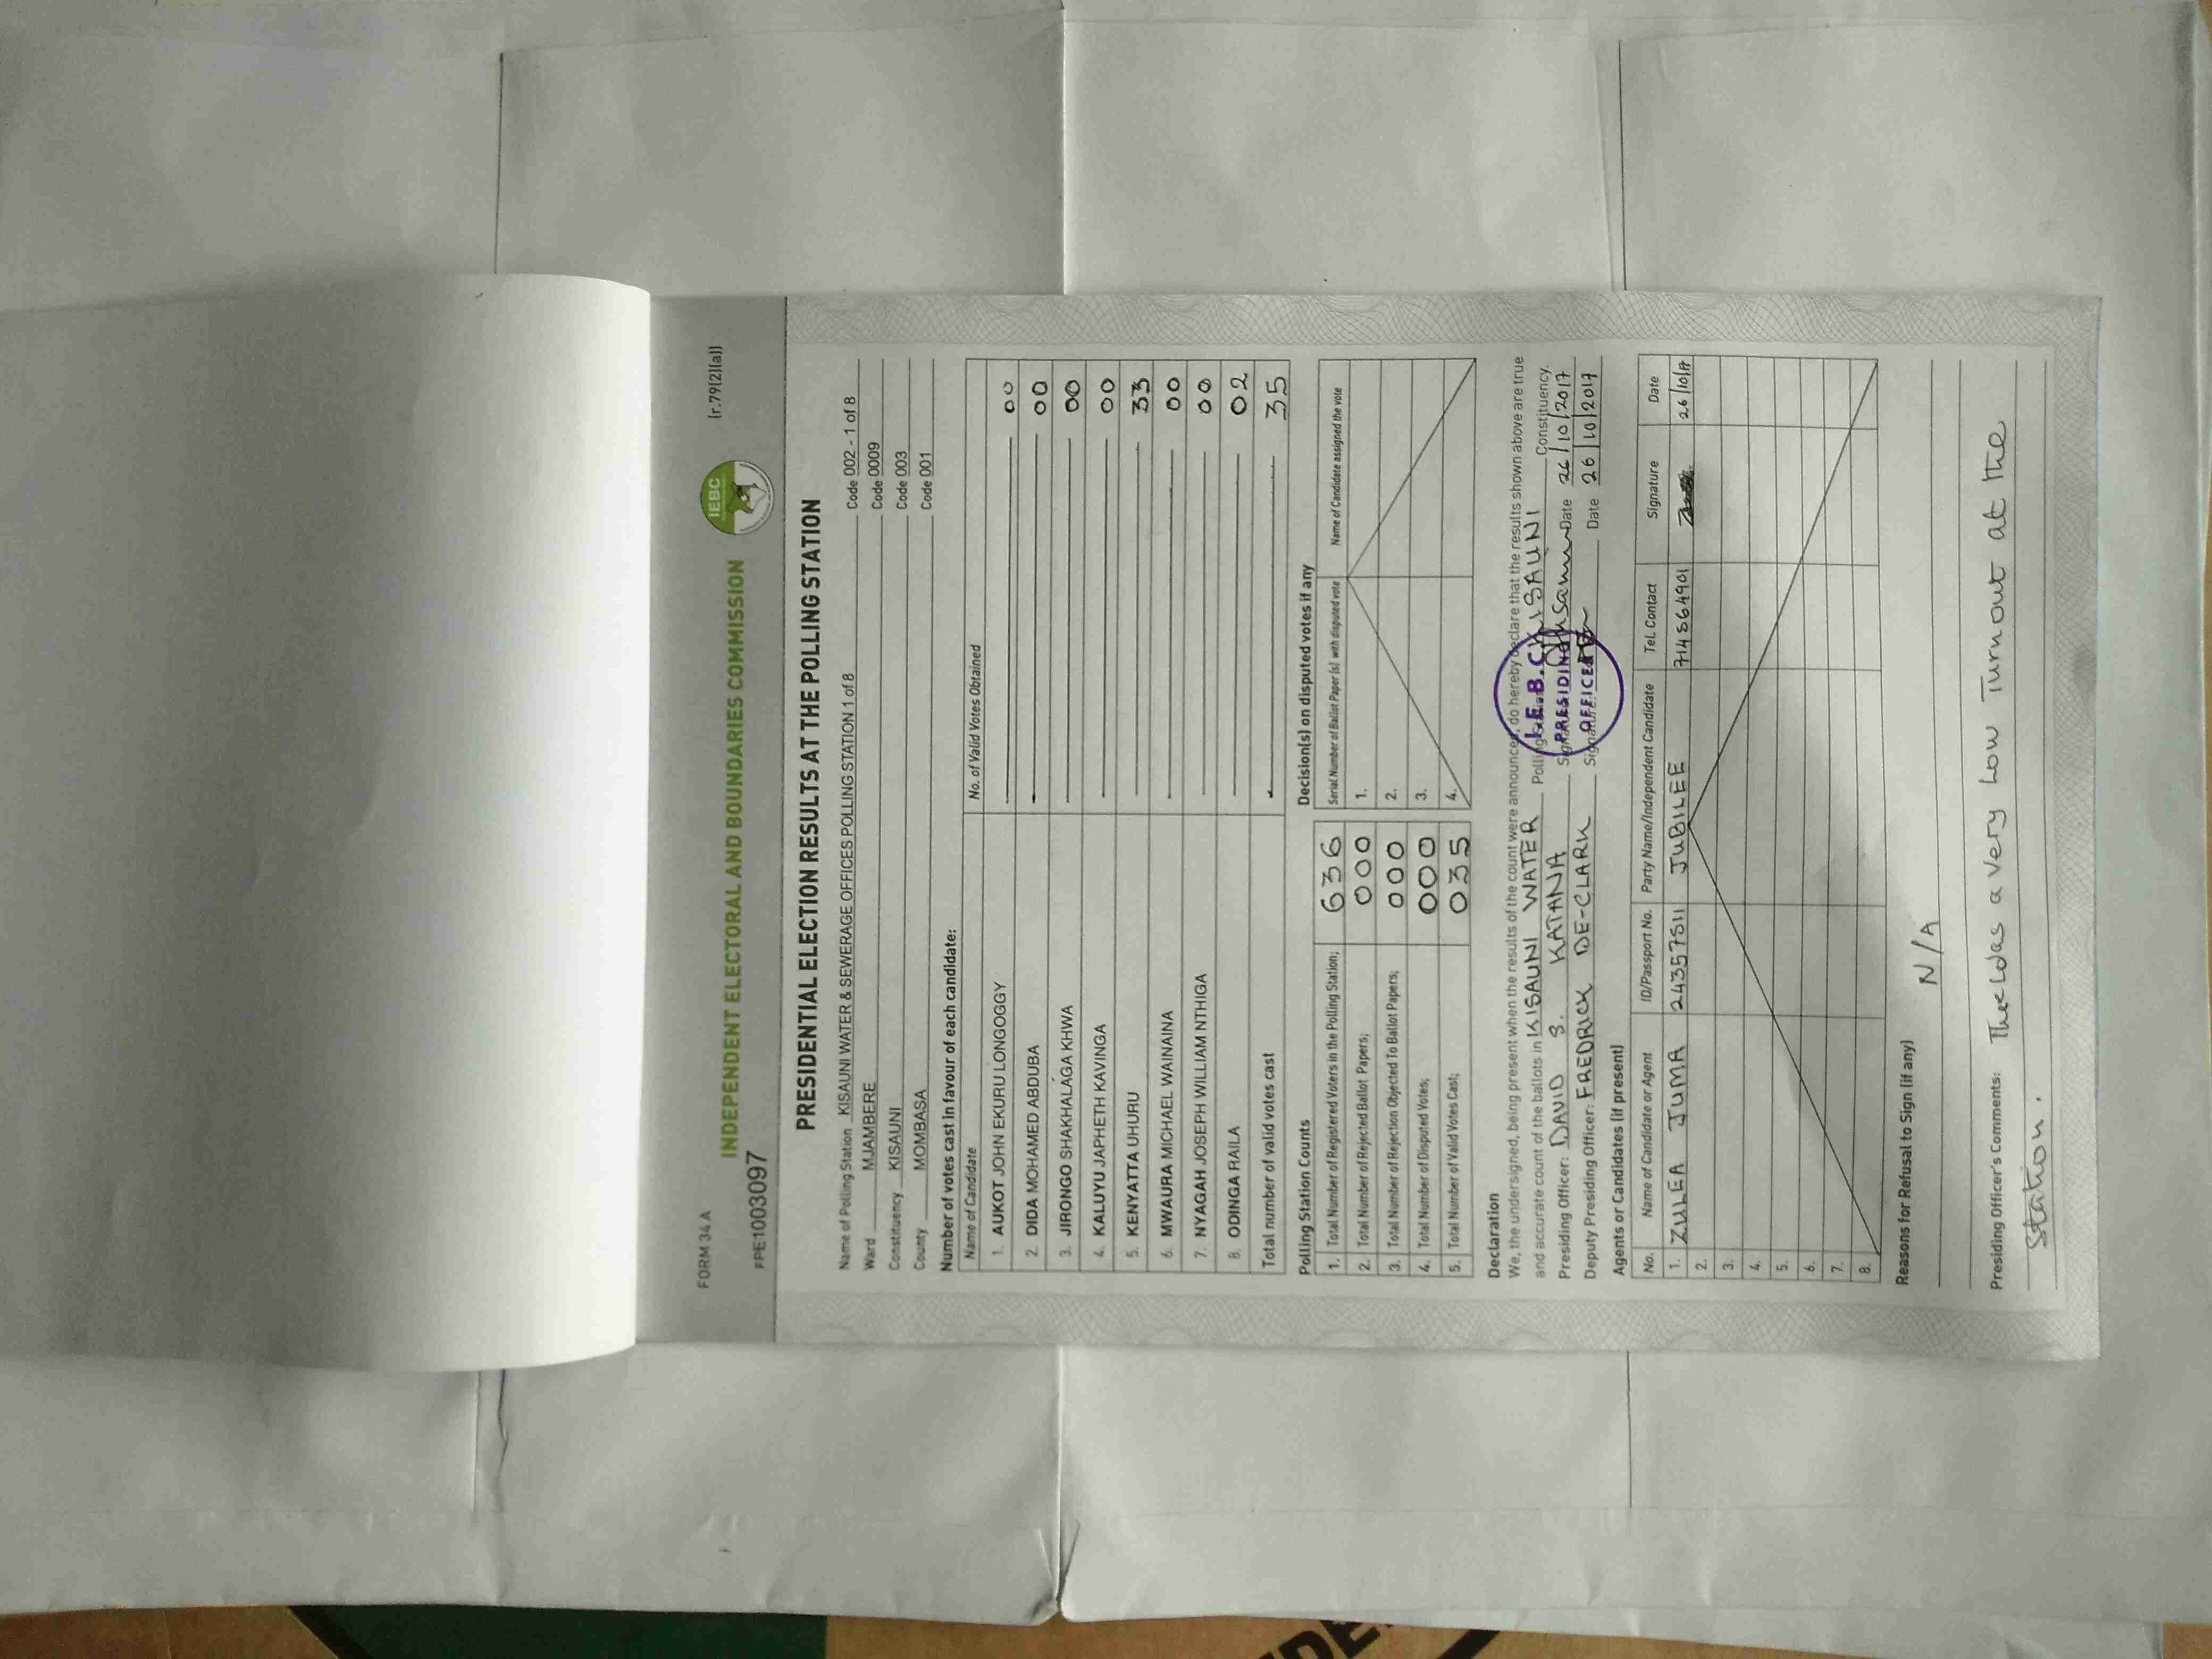 FORM 34 A
(r.79(2)(a))
INDEPENDENT ELECTORAL AND BOUNDARIES COMMISSION
IEBC
PPE1003097
PRESIDENTIAL ELECTION RESULTS AT THE POLLING STATION
Name of Polling Station KISAUNI WATER & SEWERAGE OFFICES POLLING STATION 1 of 8 Code 002 - 1 of 8
Ward MJAMBERE Code 0009
Constituency KISAUNI Code 003
County MOMBASA Code 001
Number of votes cast in favour of each candidate:
Name of Candidate No. of Valid Votes Obtained
1. AUKOT JOHN EKURU LONGOGGY 00
2. DIDA MOHAMED ABDUBA 00
3. JIRONGO SHAKHALAGA KHWA 00
4. KALUYU JAPHETH KAVINGA 00
5. KENYATTA UHURU 33
6. MWAURA MICHAEL WAINAINA 00
7. NYAGAH JOSEPH WILLIAM NTHIGA 00
8. ODINGA RAILA 02
Total number of valid votes cast 35
Polling Station Counts
1. Total Number of Registered Voters in the Polling Station; 636
2. Total Number of Rejected Ballot Papers; 000
3. Total Number of Rejection Objected To Ballot Papers; 000
4. Total Number of Disputed Votes; 000
5. Total Number of Valid Votes Cast; 035
Decision(s) on disputed votes if any
Serial Number of Ballot Paper (s) with disputed vote Name of Candidate assigned the vote
1.
2.
3.
4.
Declaration
We, the undersigned, being present when the results of the count were announced, do hereby declare that the results shown above are true
and accurate count of the ballots in KISAUNI WATER Polling KISAUNI Constituency.
Presiding Officer: DAVID S. KATANA Date 26/10/2017
Deputy Presiding Officer: FREDRICK DE-CLARK Signature: Date 26/10/2017
I.E.B.C
PRESIDING
OFFICER
Agents or Candidates (if present)
No. Name of Candidate or Agent ID/Passport No. Party Name/Independent Candidate Tel. Contact Signature Date
1. ZULEA JUMA 24357511 JUBILEE 714564901 26/10/17
2.
3.
4.
5.
6.
7.
8.
Reasons for Refusal to Sign (if any)
N/A
Presiding Officer's Comments: was a very Low Turnout at the
Station.